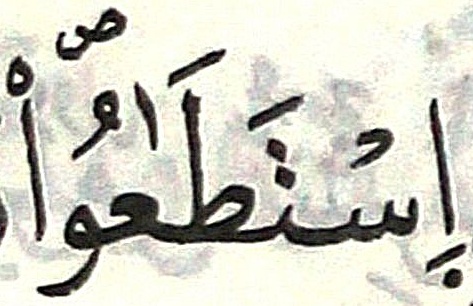 اِسْتَطَٰعُواْۖ